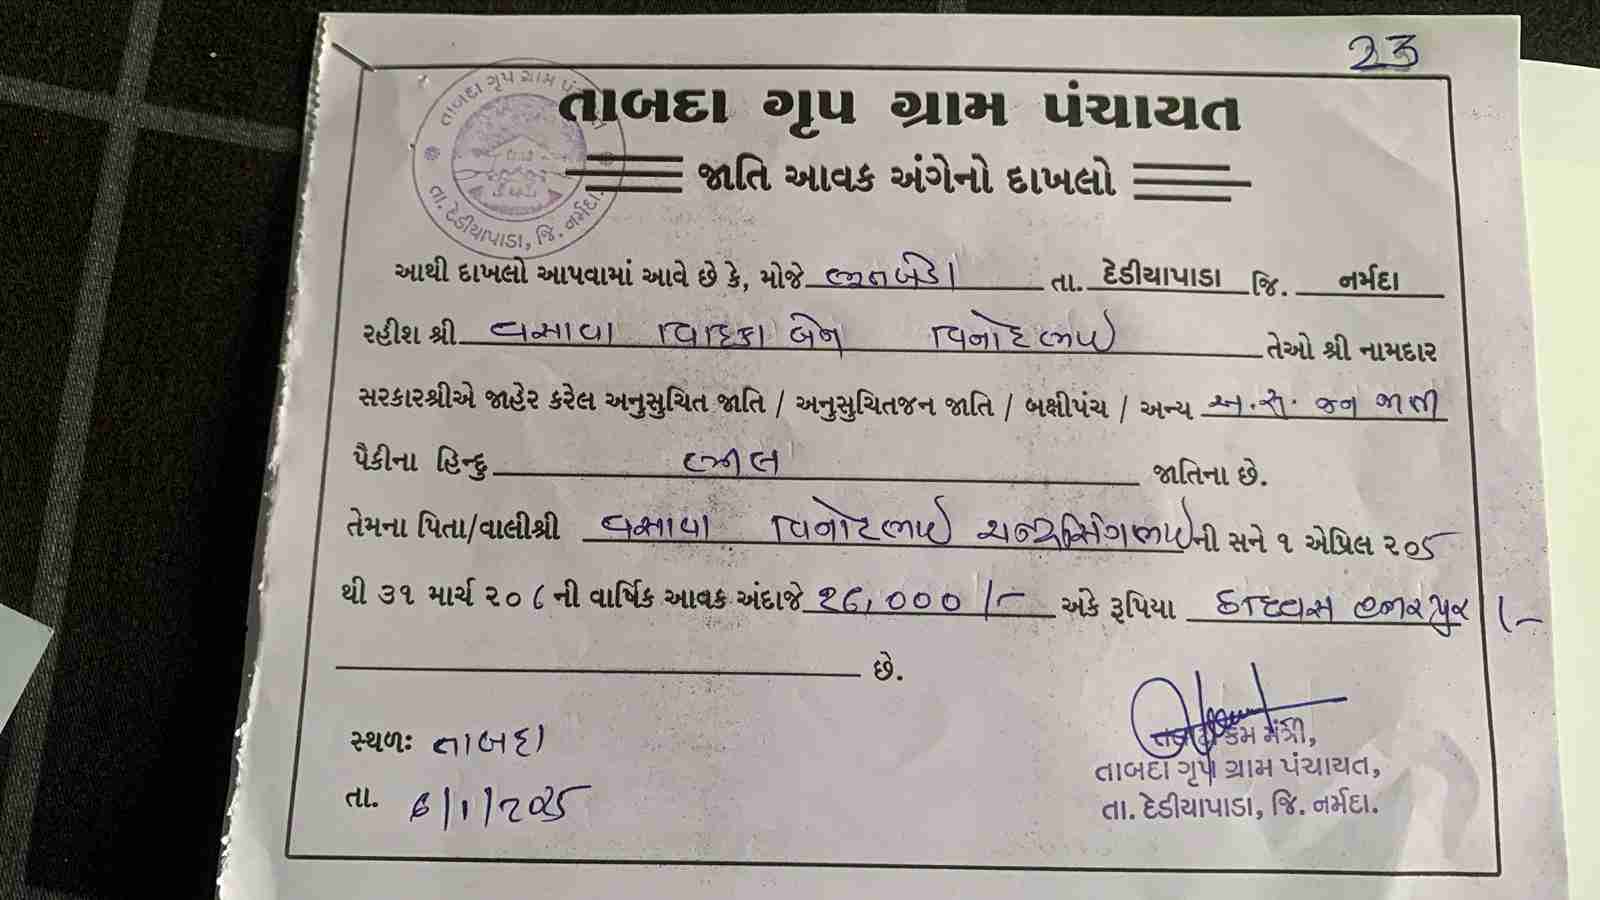 23
તાબદા ગૃપ ગ્રામ પંચાયત
જાતિ આવક અંગેનો દાખલો
તાબદા ગૃપ ગ્રામ પં
તા. દેડીયાપાડા, જિ. નર્મદા.
આથી દાખલો આપવામાં આવે છે કે, મોજે તા. દેડીયાપાડા જિ. નર્મદા
રહીશ શ્રી વસાવા બેન વિનોદભાઇ તેઓ શ્રી નામદાર
સરકારશ્રીએ જાહેર કરેલ અનુસુચિત જાતિ / અનુસુચિતજન જાતિ / બક્ષીપંચ / અન્ય અ.સુ. જન જાતી
પૈકીના હિન્દુ ભીલ જાતિના છે.
તેમના પિતા/વાલીશ્રી વસાવા વિનોદભાઇ ની સને ૧ એપ્રિલ ૨૦૫
થી ૩૧ માર્ચ ૨૦૮ ની વાર્ષિક આવક અંદાજે ,000/- અંકે રૂપિયા હજાર પુરા /-
છે.
સ્થળઃ તાબદા
તા. 6/1/2025
મંત્રી,
તાબદા ગૃપ ગ્રામ પંચાયત,
તા. દેડીયાપાડા, જિ. નર્મદા.